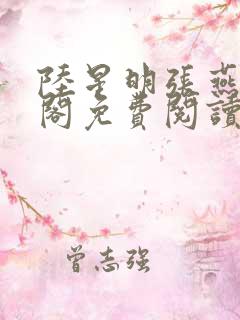 陸星明張燕
閣免費閱讀
曾志强